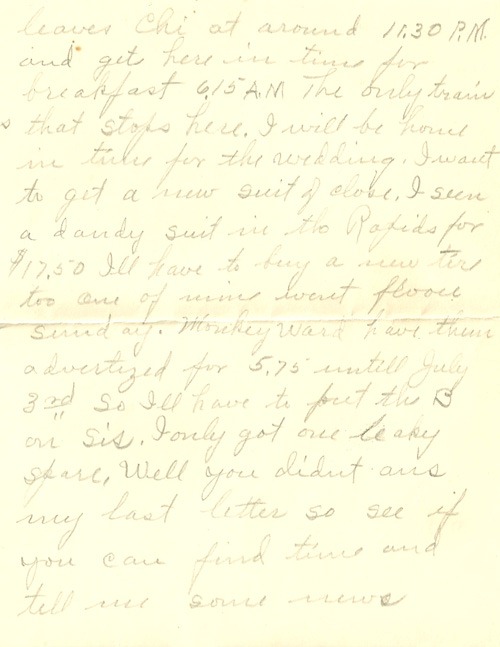 leaves Chi at around 11.30 P.M.
and gets here in time for
breakfast 6.15 A.M The only train
s that stops here. I will be home
in time for the wedding. I want
to get a new suit of close. I seen
a dandy suit in the Rapids for
$17.50 I'll have to buy a new tire
too one of mine went flooie
sunday. Monkey Ward have them
advertized for 5.75 untill July
3rd So I'll have to put the B
on sis. I only got one leaky
spare, Well you didnt ans
my last letter so see if
you can find time and
tell me some news